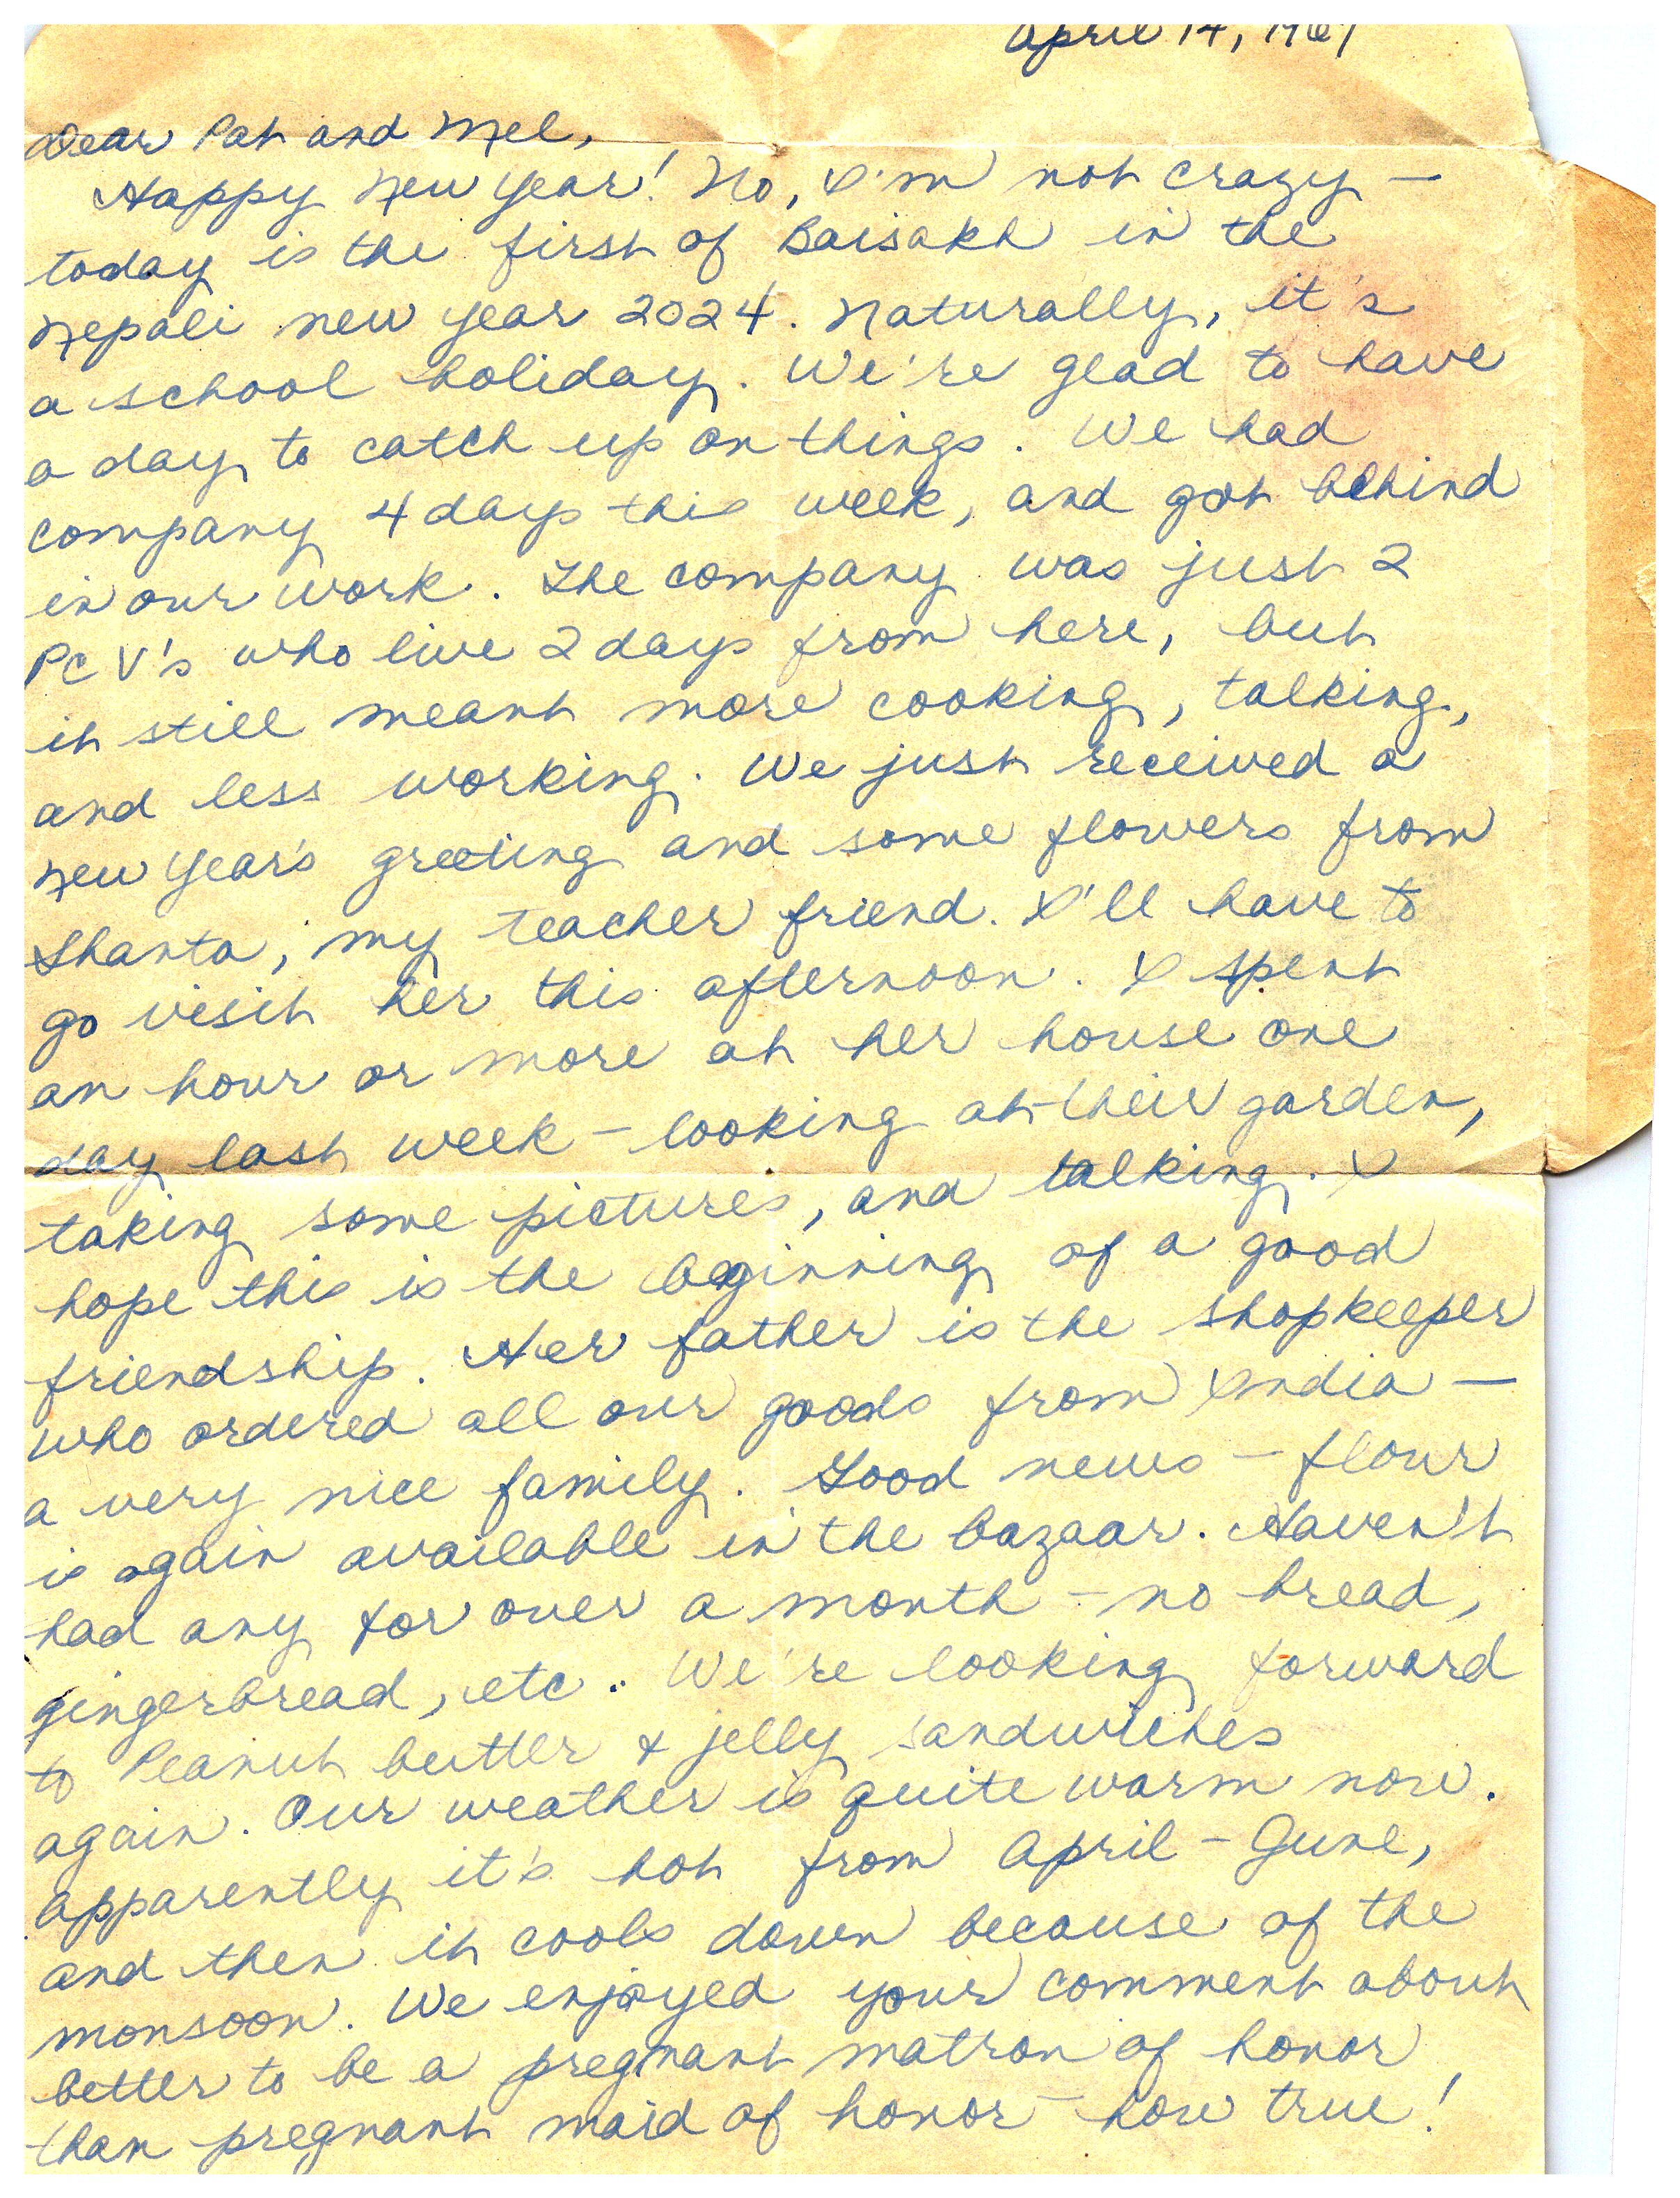 April 14, 1967
Dear Pat and Mel,
Happy New Year! No, I'm not crazy —
today is the first of Baisakh in the
Nepali new year 2024. Naturally, it's
a school holiday. We're glad to have
a day to catch up on things. We had
company 4 days this week, and got behind
in our work. The company was just 2
PCV's who live 2 days from here, but
it still meant more cooking, talking,
and less working. We just received a
New Year's greeting and some flowers from
Shanta, my teacher friend. I'll have to
go visit her this afternoon. I spent
an hour or more at her house one
day last week – looking at their garden,
taking some pictures, and talking. I
hope this is the beginning of a good
friendship. Her father is the shopkeeper
who ordered all our goods from India —
a very nice family. Good news – flour
is again available in the bazaar. Haven't
had any for over a month – no bread,
gingerbread, etc.. We're looking forward
to Peanut butter & jelly sandwiches
again. Our weather is quite warm now.
Apparently it's hot from April – June,
and then it cools down because of the
monsoon. We enjoyed your comment about
better to be a pregnant matron of honor
than pregnant maid of honor – how true!